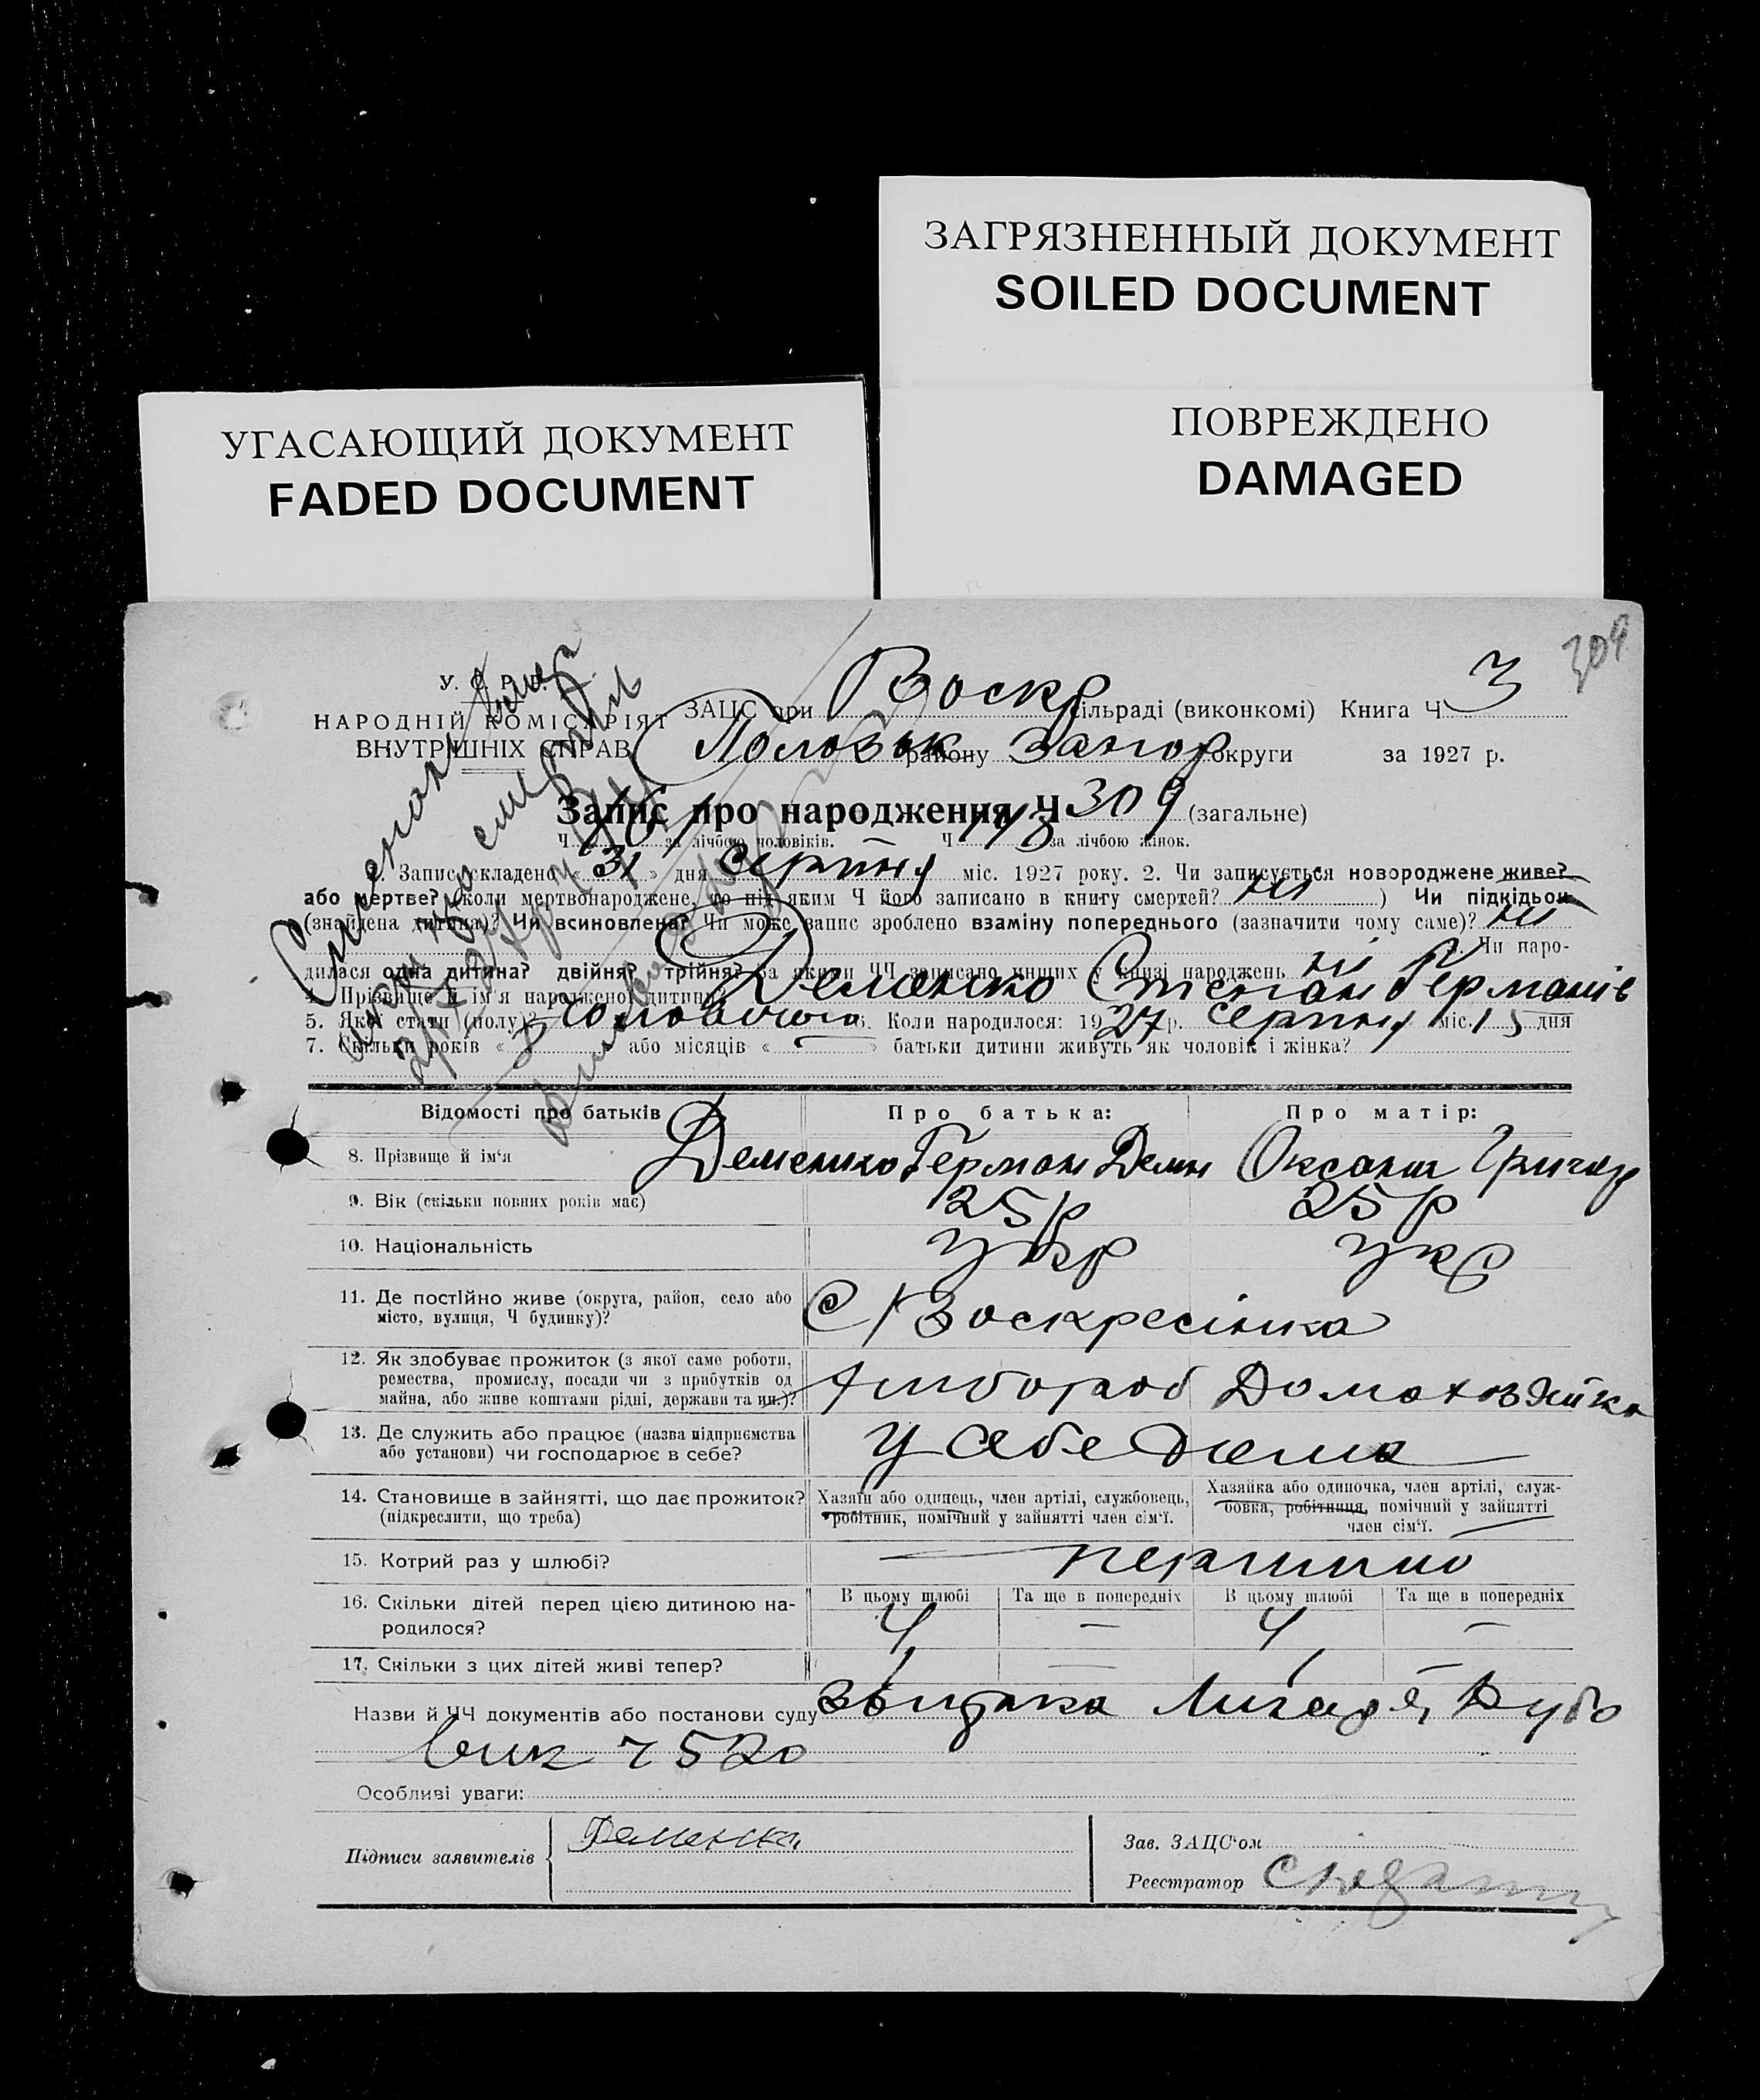 ЗАГРЯЗНЕННЫЙ ДОКУМЕНТ
SOILED DOCUMENT
УГАСАЮЩИЙ ДОКУМЕНТ
FADED DOCUMENT
ПОВРЕЖДЕНО
DAMAGED
309
У. С. Р. Р.
НАРОДНІЙ КОМІСАРІЯТ
ВНУТРІШНІХ СПРАВ
ЗАЦС при Воскр сільраді (виконкомі) Книга Ч 3
Пологівськ району Запор округи за 1927 р.
Запис про народження Ч 309 (загальне)
Ч за лічбою чоловіків. Ч за лічбою жінок.
1. Запис складено « 31 » дня серпня міс. 1927 року. 2. Чи записується новороджене живе?
або мертве? (коли мертвонароджене, то під яким Ч його записано в книгу смертей? ні ) Чи підкідьок
(знайдена дитина)? Чи всиновлена? Чи може запис зроблено взаміну попереднього (зазначити чому саме)? ні
3. Чи наро-
дилася одна дитина? двійня? трійня? За якими ЧЧ записано инших у книзі народжень ні
4. Прізвище й ім'я народженої дитини? Деменко Степан Германів
5. Якої стати (полу)? чоловічого 6. Коли народилося: 1927 р. серпня міс. 15 дня
7. Скільки років « » або місяців « — » батьки дитини живуть як чоловік і жінка?
Відомості про батьків Про батька: Про матір:
8. Прізвище й ім'я Деменко Герман Демн Оксана Григор
9. Вік (скільки повних років має) 25 р 25 р
10. Національність укр укр
11. Де постійно живе (округа, район, село або
місто, вулиця, Ч будинку)? С Воскресінка
12. Як здобуває прожиток (з якої саме роботи,
ремества, промислу, посади чи з прибутків од
майна, або живе коштами рідні, держави та ин.)? хлібороб Домохозяйка
13. Де служить або працює (назва підприємства
або установи) чи господарює в себе? у себе дома
14. Становище в зайнятті, що дає прожиток?
(підкреслити, що треба)
Хазяїн або одинець, член артілі, службовець,
робітник, помічний у зайнятті член сім'ї.
Хазяйка або одиночка, член артілі, служ-
бовка, робітниця, помічний у зайнятті
член сім'ї.
15. Котрий раз у шлюбі? — первший
16. Скільки дітей перед цією дитиною на-
родилося?
В цьому шлюбі Та ще в попередніх В цьому шлюбі Та ще в попередніх
4 — 4 —
17. Скільки з цих дітей живі тепер? 1 — 1 —
Назви й ЧЧ документів або постанови суду
Особливі уваги:
Підписи заявителів Деменко
Зав. ЗАЦС'ом
Реєстратор